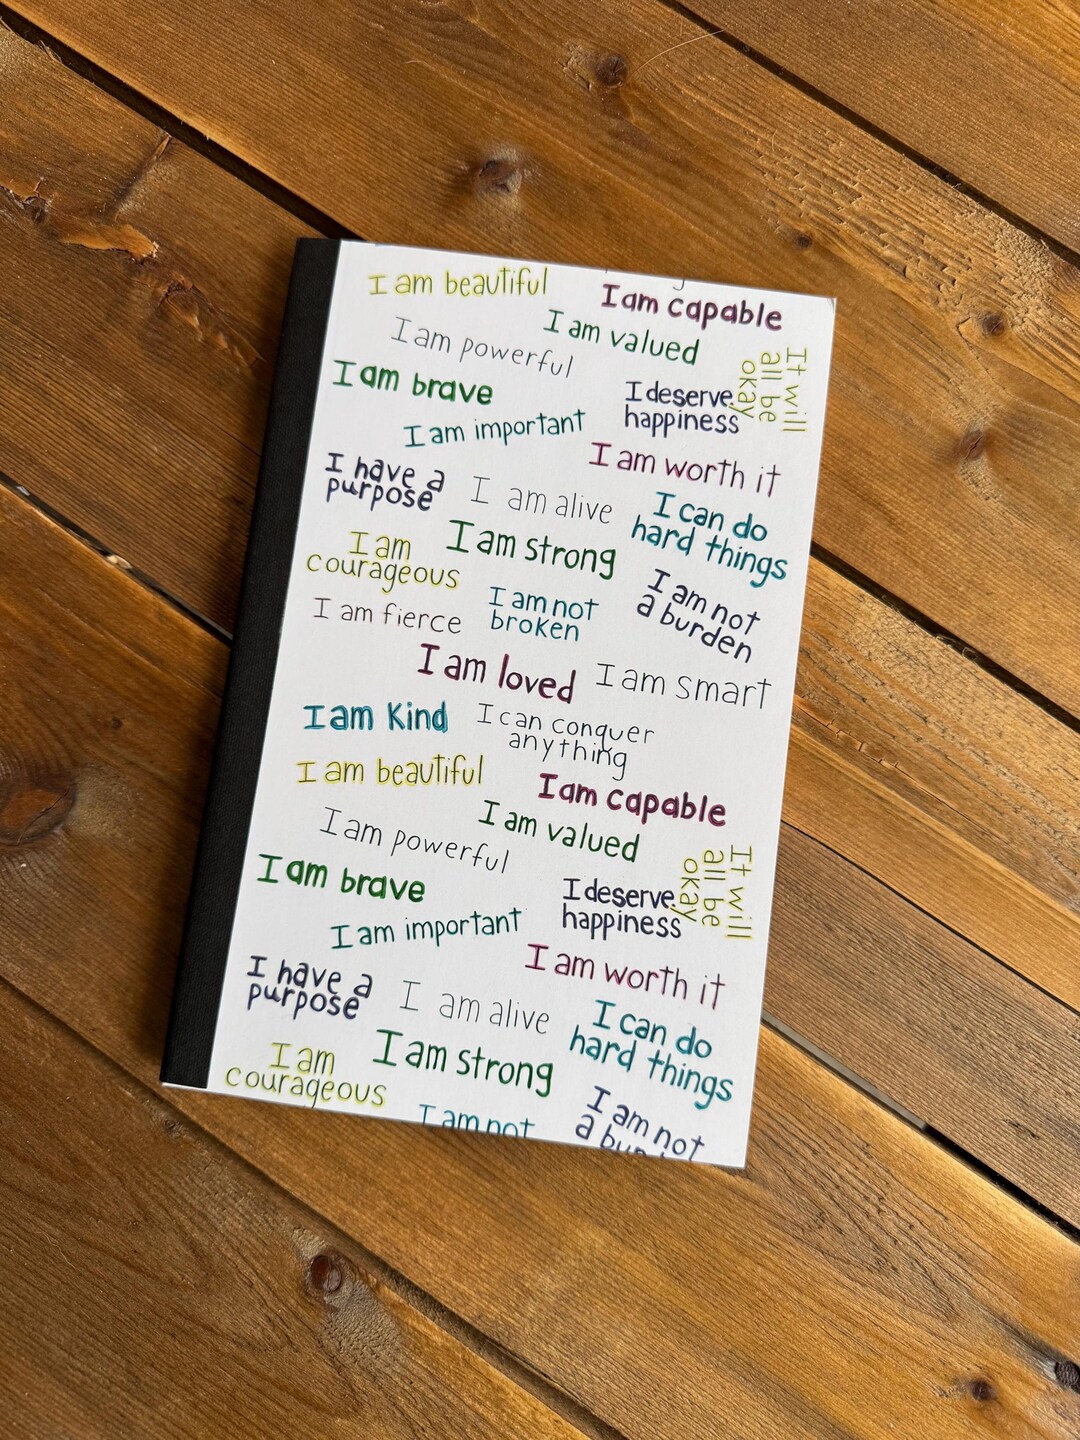 I am beautiful
I am capable
I am valued
I am powerful
It will
all be
okay
I am brave
I deserve
happiness
I am important
I am worth it
I have a
purpose
I am alive
I can do
hard things
I am strong
I am
courageous
I am not
a burden
I am not
broken
I am fierce
I am loved
I am smart
I am Kind
I can conquer
anything
I am beautiful
I am capable
I am valued
I am powerful
It will
all be
okay
I am brave
I deserve
happiness
I am important
I am worth it
I have a
purpose
I am alive
I can do
hard things
I am strong
I am
courageous
I am not
I am not
a